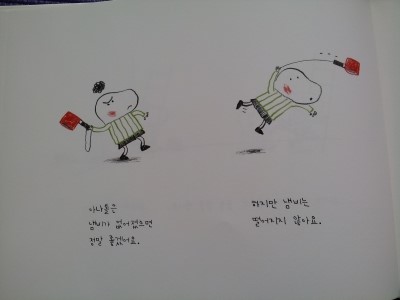 아나톨은
냄비가 없어졌으면
정말 좋겠어요.
하지만 냄비는
떨어지지 않아요.